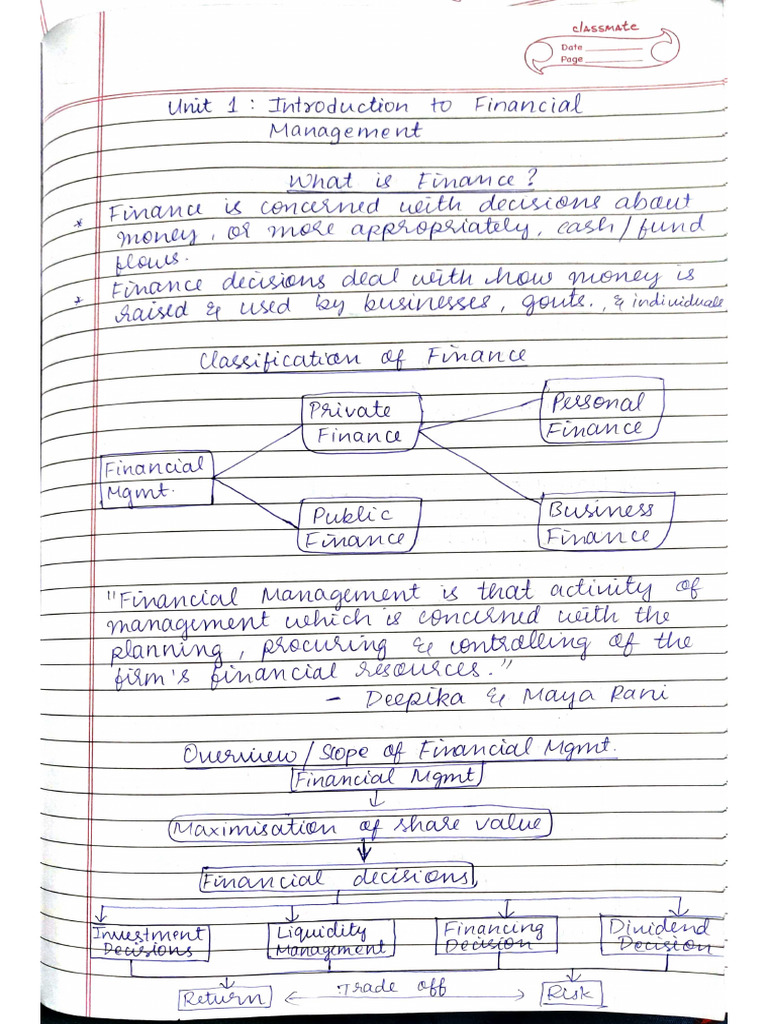 classmate
Date
Page
Unit 1 : Introduction to Financial
Management
What is Finance?
* Finance is concerned with decisions about
money, or more appropriately, cash/fund
flows.
* Finance decisions deal with how money is
raised & used by businesses, govts., & individuals
Classification of Finance
Private
Finance
Personal
Finance
Financial
Mgmt.
Public
Finance
Business
Finance
"Financial Management is that activity of
management which is concerned with the
planning, procuring & controlling of the
firm's financial resources."
- Deepika & Maya Rani
Overview/Scope of Financial Mgmt.
Financial Mgmt
Maximisation of share value
Financial decisions
Investment
Decisions
Liquidity
Management
Financing
Decision
Dividend
Decision
Return
Trade off
Risk